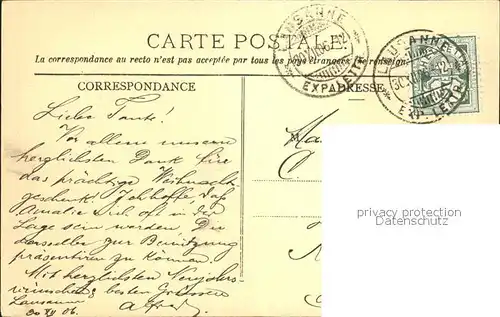 CARTE POSTALE.
La correspondance au recto n'est pas acceptée par tous les pays étrangers.
CORRESPONDANCE
ADRESSE
LAUSANNE
EXP. LETTR.
LAUSANNE
EXP. LETTR.
Liebe Tante!
Vor allem unseren
herzlichsten Dank für
das prächtige Weihnachts-
geschenk! Ich hoffe, daß
Amalie Dich oft in der
Lage sein werden, Dir
denselben zur Benützung
präsentiren zu können.
Mit herzlichsten Neujahrs-
wünschen & besten Grüssen
Lausanne
30 XII 06. Alfred
privacy protection
Datenschutz